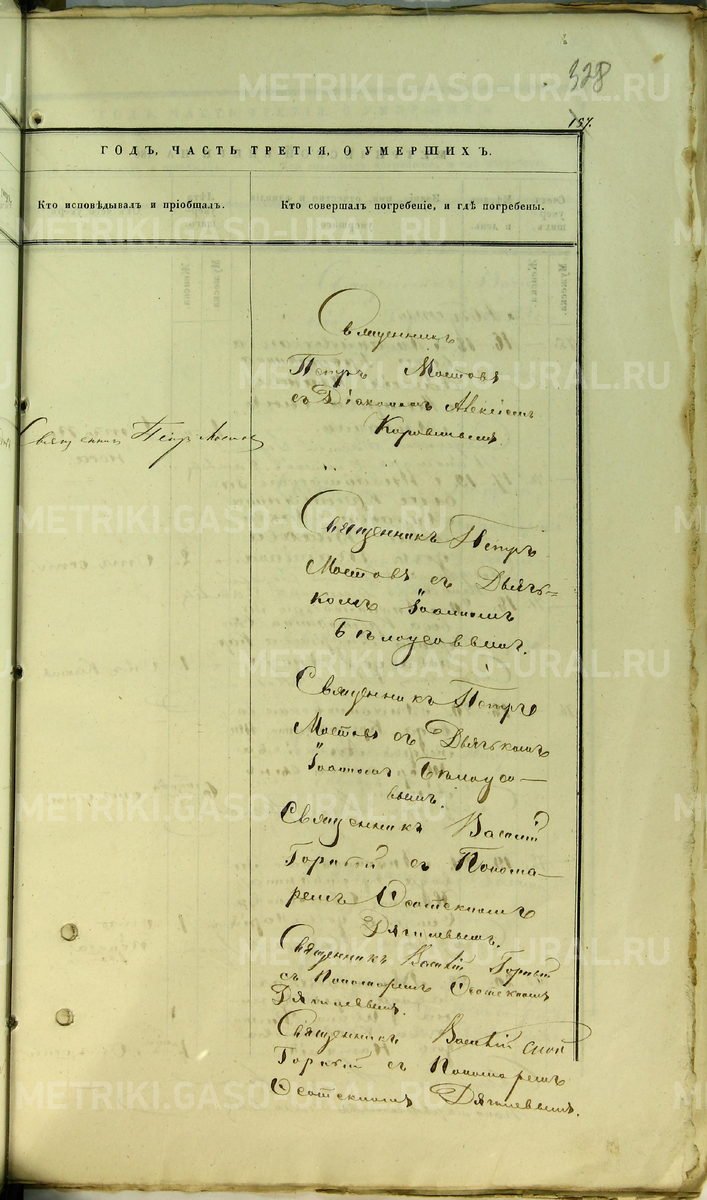 328
187.
ГОДЪ, ЧАСТЬ ТРЕТІЯ, О УМЕРШИХЪ.
Кто исповѣдывалъ и пріобщалъ.
Кто совершалъ погребеніе, и гдѣ погребены.
Священникъ
Петръ Мостовъ
съ Діакономъ Алексіемъ
Священникъ Петръ Мостовъ
Священникъ Петръ
Мостовъ съ Дьячь-
комъ Іоанномъ
Бѣлоусовымъ.
Священникъ Петръ
Мостовъ съ Дьячькомъ
Іоанномъ Бѣлоусо-
вымъ.
Священникъ Василій
Горный съ Понома-
ремъ Ѳеоктистомъ
Дягилевымъ.
Священникъ Василій Горный
съ Пономаремъ
Дягилевымъ.
Священникъ Василій
Горный съ Пономаремъ
Дягилевымъ.
METRIKI.GASO-URAL.RU